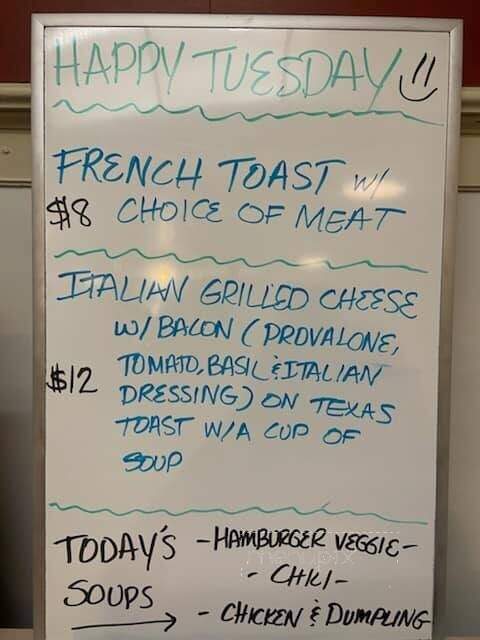 HAPPY TUESDAY
FRENCH TOAST W/
$8 CHOICE OF MEAT
ITALIAN GRILLED CHEESE
W/ BACON (PROVALONE,
TOMATO, BASIL & ITALIAN
$12 DRESSING) ON TEXAS
TOAST W/A CUP OF
SOUP
TODAY'S - HAMBURGER VEGGIE -
- CHILI -
SOUPS
- CHICKEN & DUMPLING